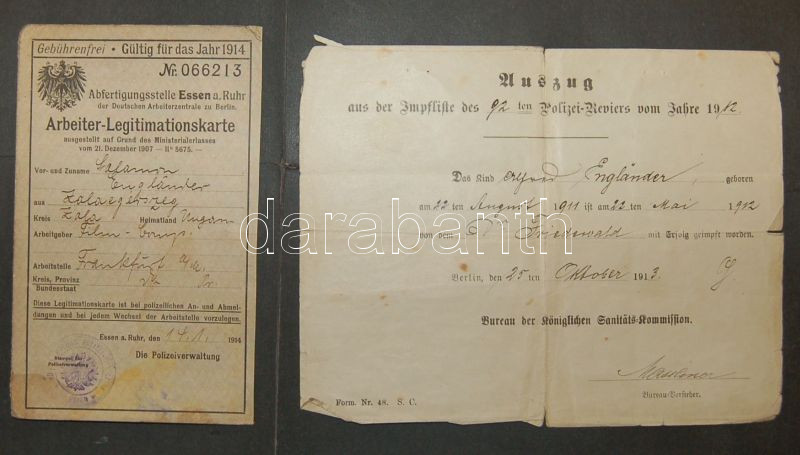 Gebührenfrei · Gültig für das Jahr 1914
Nr. 066213
Abfertigungsstelle Essen a. Ruhr
der Deutschen Arbeiterzentrale zu Berlin.
Arbeiter-Legitimationskarte
ausgestellt auf Grund des Ministerialerlasses
vom 21. Dezember 1907 — IIb 5675. —
Vor- und Zuname Salamon
Engländer
aus Zalaegerszeg
Kreis Zala Heimatland Ungarn
Arbeitgeber Film-Comp.
Arbeitsstelle Frankfurt a/M.
Kreis, Provinz
Bundesstaat
Diese Legitimationskarte ist bei polizeilichen An- und Abmel-
dungen und bei jedem Wechsel der Arbeitsstelle vorzulegen.
Essen a. Ruhr, den 14.1. 1914
Stempel der
Polizeiverwaltung
Die Polizeiverwaltung
Auszug
aus der Impfliste des 92 ten Polizei-Reviers vom Jahre 1912.
Das Kind Alfred Engländer, geboren
am 22 ten August 1911 ist am 22 ten Mai 1912
von dem Dr. Friedewald mit Erfolg geimpft worden.
Berlin, den 25 ten Oktober 1913.
Bureau der Königlichen Sanitäts-Kommission.
Bureau-Vorsteher.
Form. Nr. 48. S. C.
darabanth